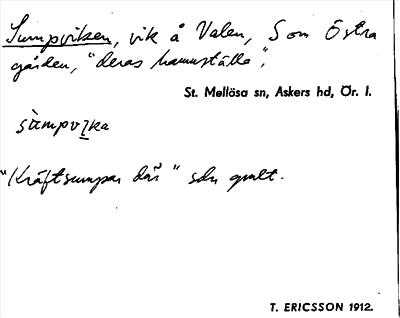 Sumpviken, vik å Valen, S om Östra
gården, "deras hamnställe",
St. Mellösa sn, Askers hd, Ör. l.
sùmpvika
"Kräftsumpar där" sdn
T. ERICSSON 1912.